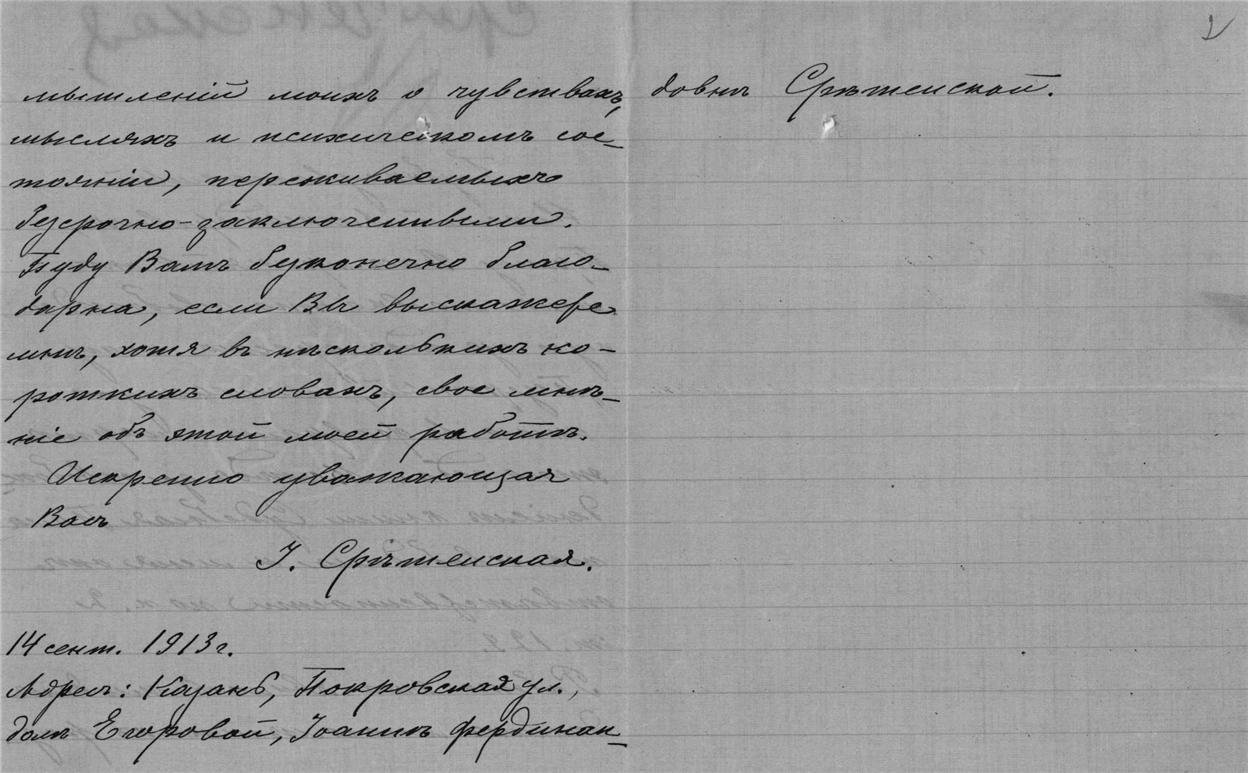 мышленій моихъ о чувствахъ,
мысляхъ и психическомъ сос-
тояніи, переживаемыхъ
безсрочно-заключенными.
Буду Вамъ безконечно благо-
дарна, если Вы выскажете
мнѣ, хотя въ нѣсколькихъ ко-
роткихъ словахъ, свое мнѣ-
ніе объ этой моей работѣ.
Искренно уважающая
Васъ
I. Срѣтенская.
14 сент. 1913 г.
Адресъ: Казань, Покровская ул.,
домъ Егоровой, Iоаннѣ Фердинан-
довнѣ Срѣтенской.
2